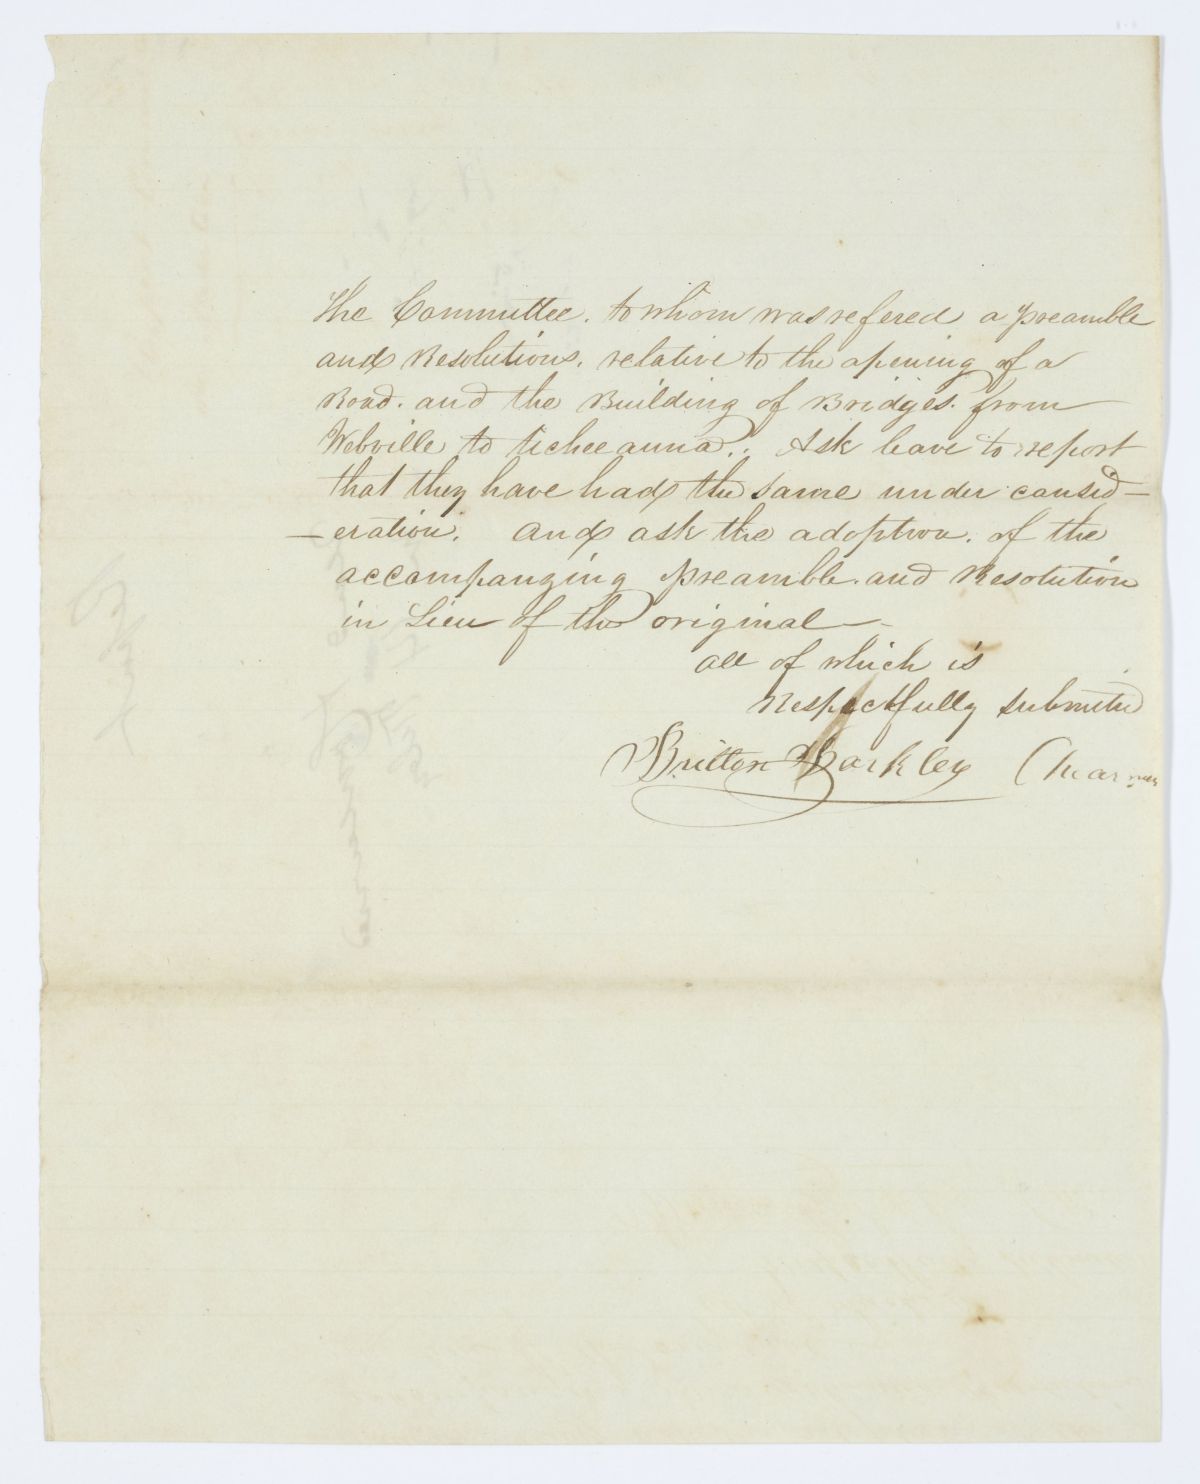 The Committee. to whom was refered a preamble
and Resolutions. relative to the opening of a
Road. and the Building of Bridges. from
Webville to ticheeanna.. Ask leave to report
that they have had the same under consid–
–eration. And ask the adoption. of the
accompanying preamble. and Resolution
in Lieu of the original–
all of which is
Respectfully submitted
Britton Barkley Charman